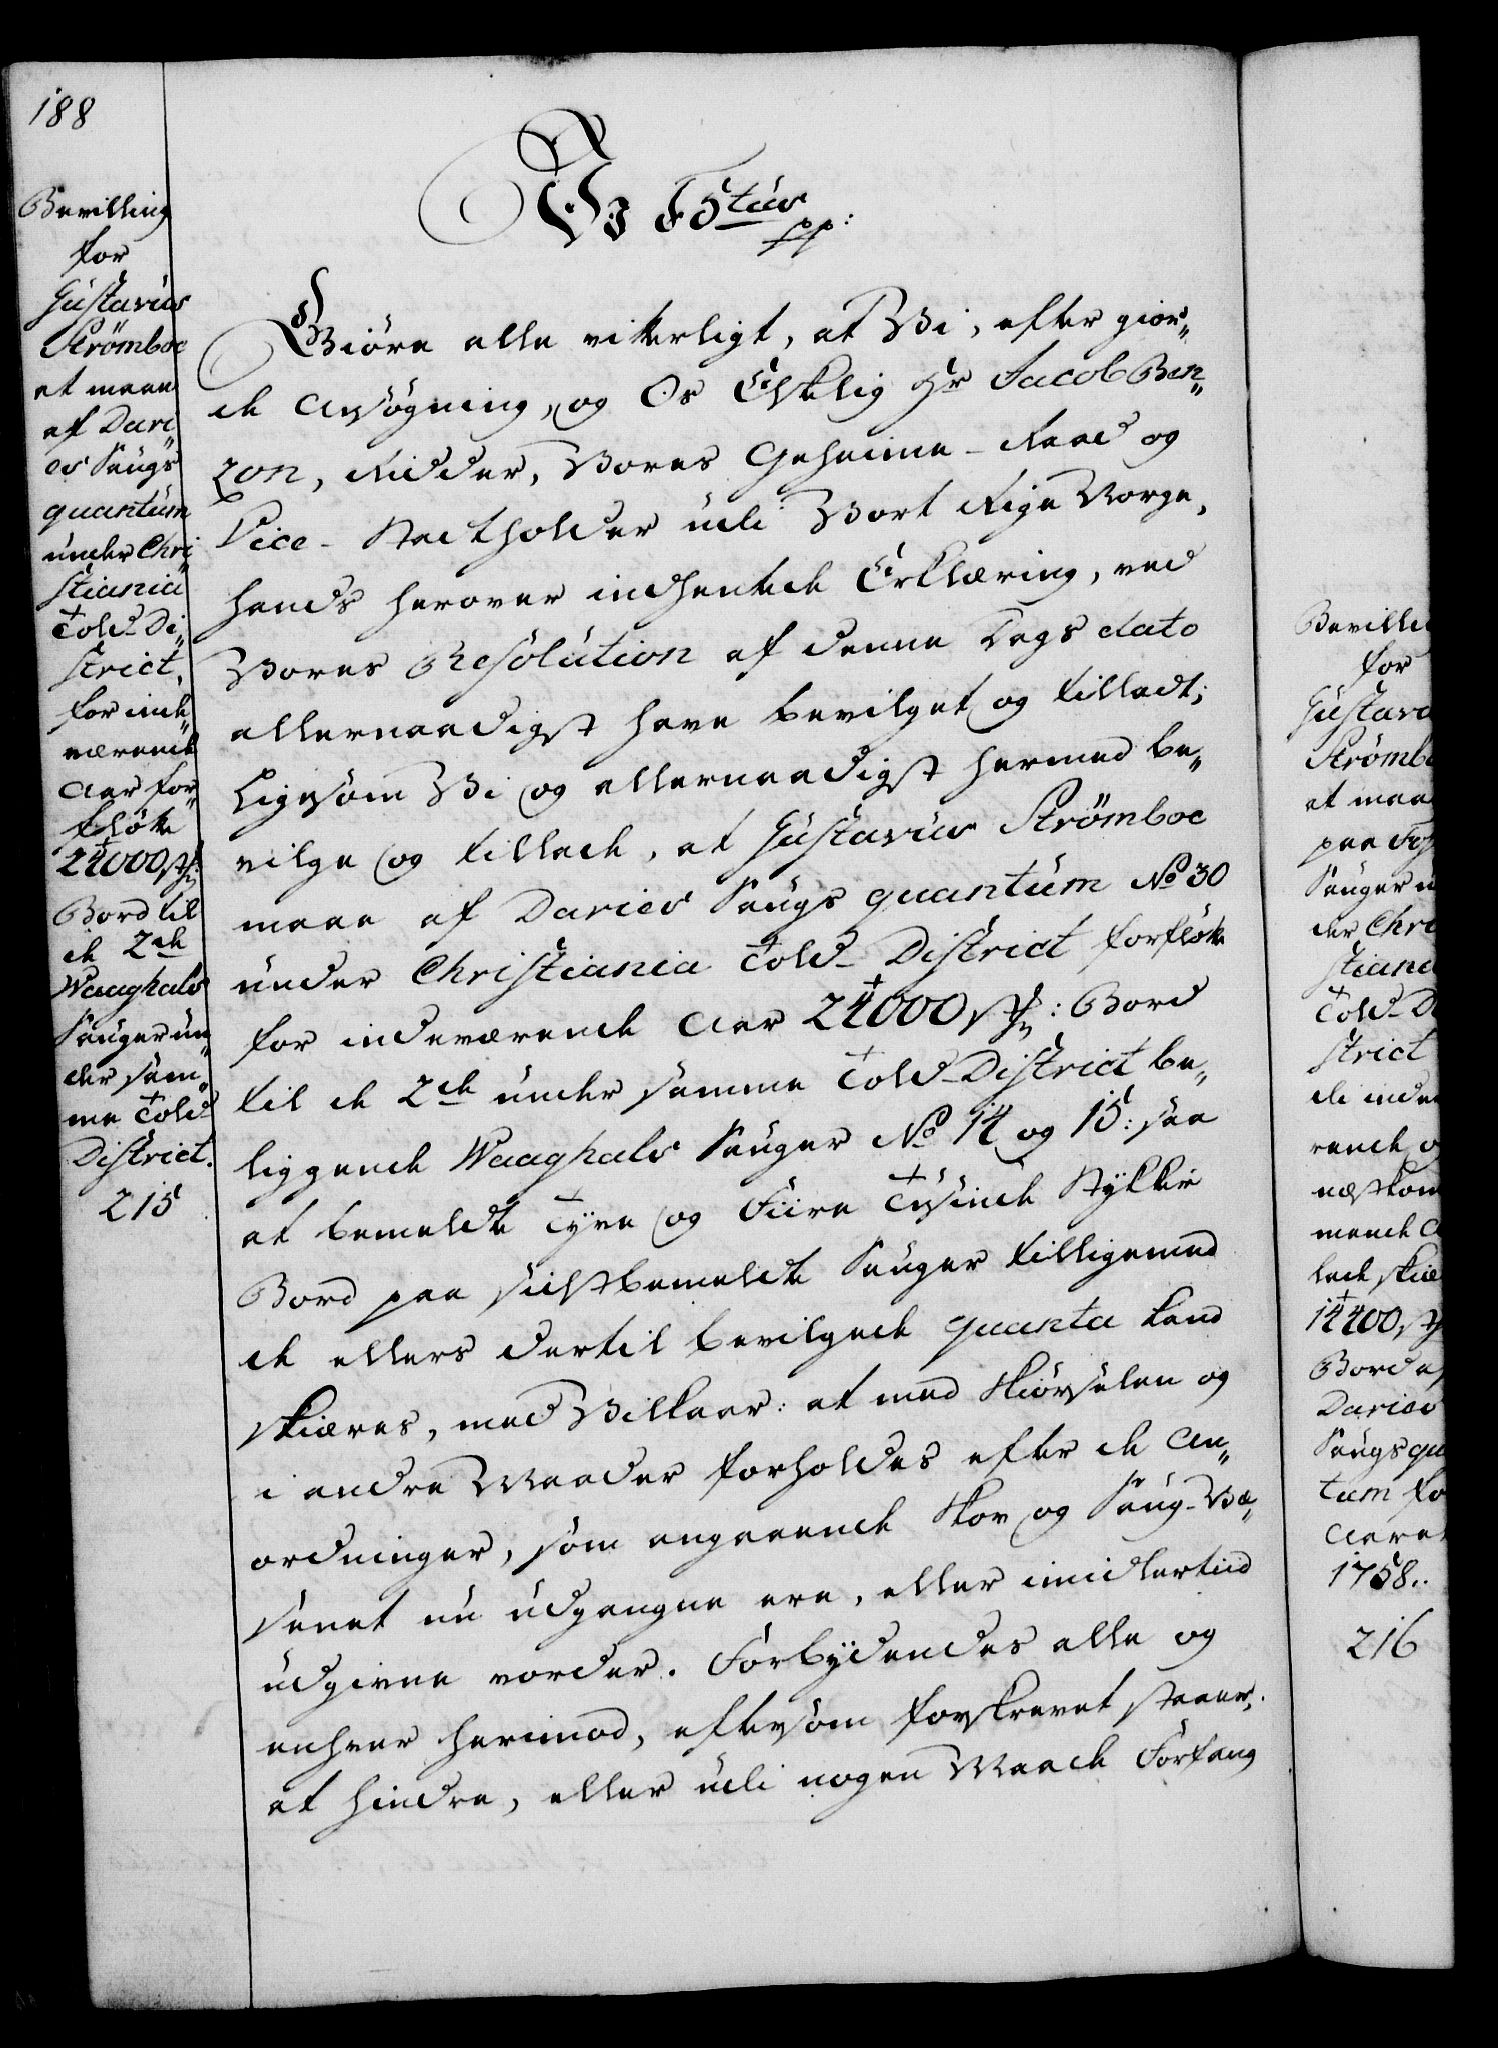 188
Bevilling
for
Gustavus
Strömboe
at maae
af Dari„
es Saugs
quantum
under Chri„
stiania
Told-Di„
strict,
for inde„
værende
Aar for„
flötte
24000 st:
Bord til
de 2de
Waaghals
Sauger un„
der sam„
me Told
District.
215
Wi F5tus
pp:
Giöre alle vitterligt, at Wi, efter gior„
de Ansögning, og Os Elskelig Hr Jacob Ben„
zon, Ridder, Vores Geheime-Raad og
Vice-Stadtholder udi Vort Rige Norge,
hands herover indhentede Erklæring, ved
Vores Resolution af denne Dags dato
allernaadigst have bevilget og tilladt;
Ligesom Wi og allernaadigst hermed be„
vilge og tillade, at Gustavus Strömboe
maae af Daries Saugs quantum No 30
under Christiania Told-District forflötte
for indeværende Aar 24000 st: Bord
til de 2de under samme Told-District be„
liggende Waaghals Sauger No 14 og 15: saa
at bemeldte Tyve og Fiire Tusinde Stykker
Bord paa sidstbemeldte Sauger tilligemed
de ellers dertil bevilgede quanta kand
skiæres, med Vilkaar: at med Skiørselen og
i andre Maader forholdes efter de An„
ordninger, som angaaende Skov og Saug-Væ„
senet nu udgangne ere, eller imidlertiid
udgivne vorder. Forbydendes alle og
enhver herimod, eftersom forskrevet staaer,
at hindre, eller udi nogen Maade Forfang
Bevilli
for
Gustav
Strömb
at maa
paa
Sauger u
der Chri
stiani
Told-D
strict
di inde
rende o
næstkom
mende A
lade skiæ
14400 st
Bord af
Daries
Saugs qu
tum fo
Aaret
1758..
216